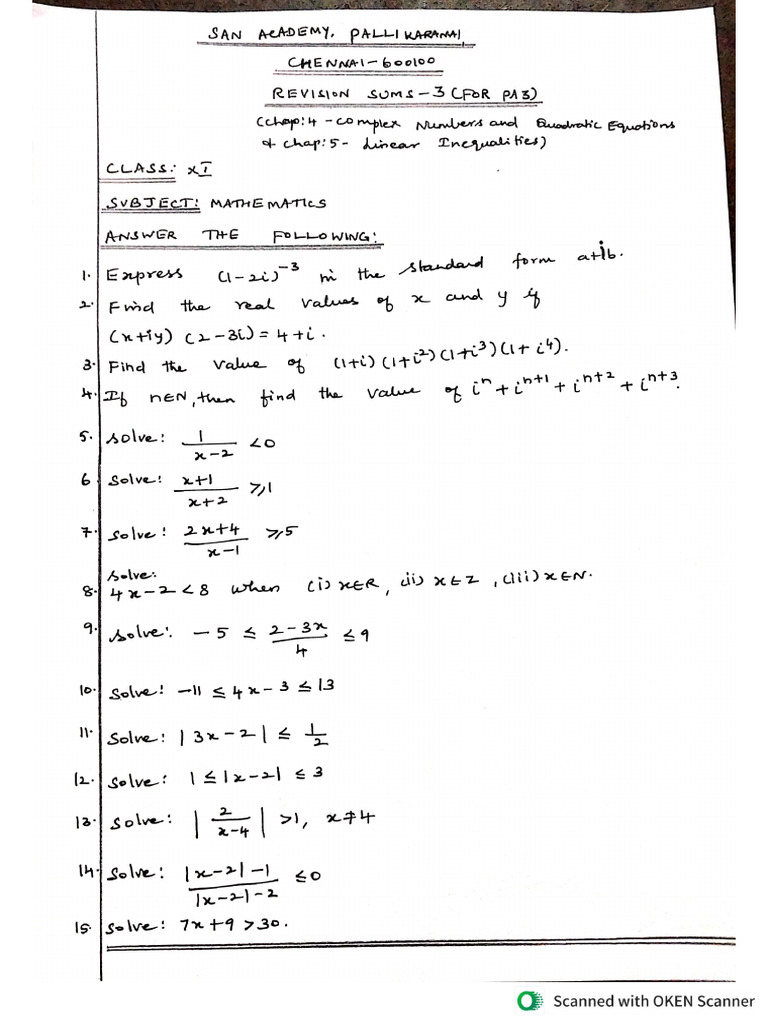 SAN ACADEMY, PALLIKARANAI,
CHENNAI-600100
REVISION SUMS-3 (FOR PA3)
(chap:4 - complex Numbers and Quadratic Equations
& chap:5 - Linear Inequalities)
CLASS: XI
SUBJECT: MATHEMATICS
ANSWER THE FOLLOWING:
1. Express (1-2i)⁻³ in the standard form a+ib.
2. Find the real values of x and y if
(x+iy) (2-3i) = 4+i.
3. Find the value of (1+i) (1+i²) (1+i³) (1+i⁴).
4. If n∈N, then find the value of iⁿ + iⁿ⁺¹ + iⁿ⁺² + iⁿ⁺³.
5. Solve: 1/(x-2) <0
6. Solve: (x+1)/(x+2) ≥1
7. Solve: (2x+4)/(x-1) ≥5
Solve:
8. 4x-2<8 when (i) x∈R, (ii) x∈Z, (iii) x∈N.
9. Solve: -5 ≤ (2-3x)/4 ≤ 9
10. Solve: -11 ≤ 4x-3 ≤ 13
11. Solve: |3x-2| ≤ 1/2
12. Solve: 1 ≤ |x-2| ≤ 3
13. Solve: |2/(x-4)| >1, x≠4
14. Solve: (|x-2|-1)/(|x-2|-2) ≤0
15. Solve: 7x+9 >30.
Scanned with OKEN Scanner